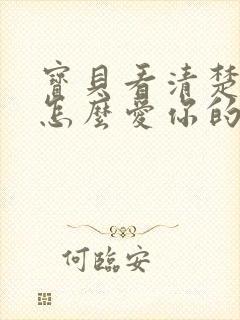 寶貝看清楚
怎麼愛你的
何臨安